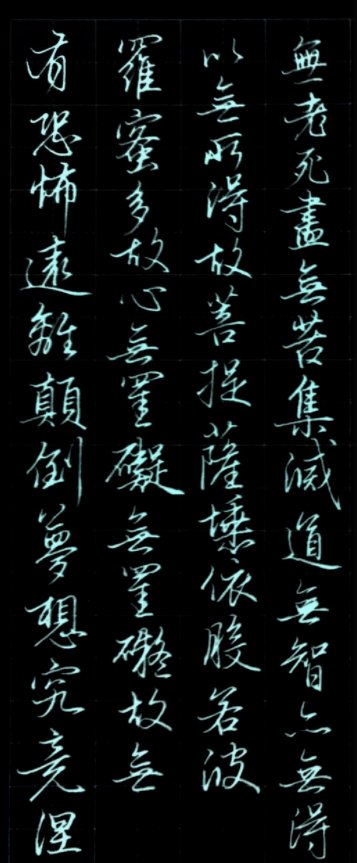 無老死盡無苦集滅道無智亦無得
以無所得故菩提薩埵依般若波
羅蜜多故心無罣礙無罣礙故無
有恐怖遠離顛倒夢想究竟涅